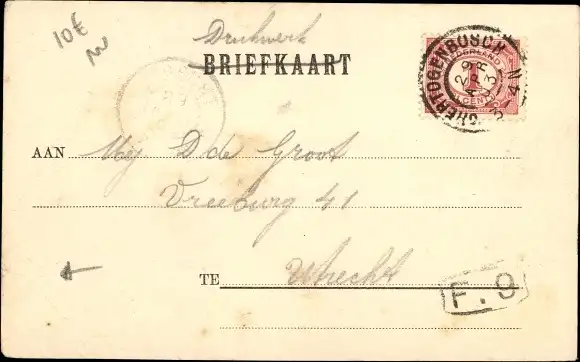 10€
Drukwerk
BRIEFKAART
'SHERTOGENBOSCH
NEDERLAND
1
CENT
AAN Mej D de Groot
Vreeburg 41
TE Utrecht
F.9